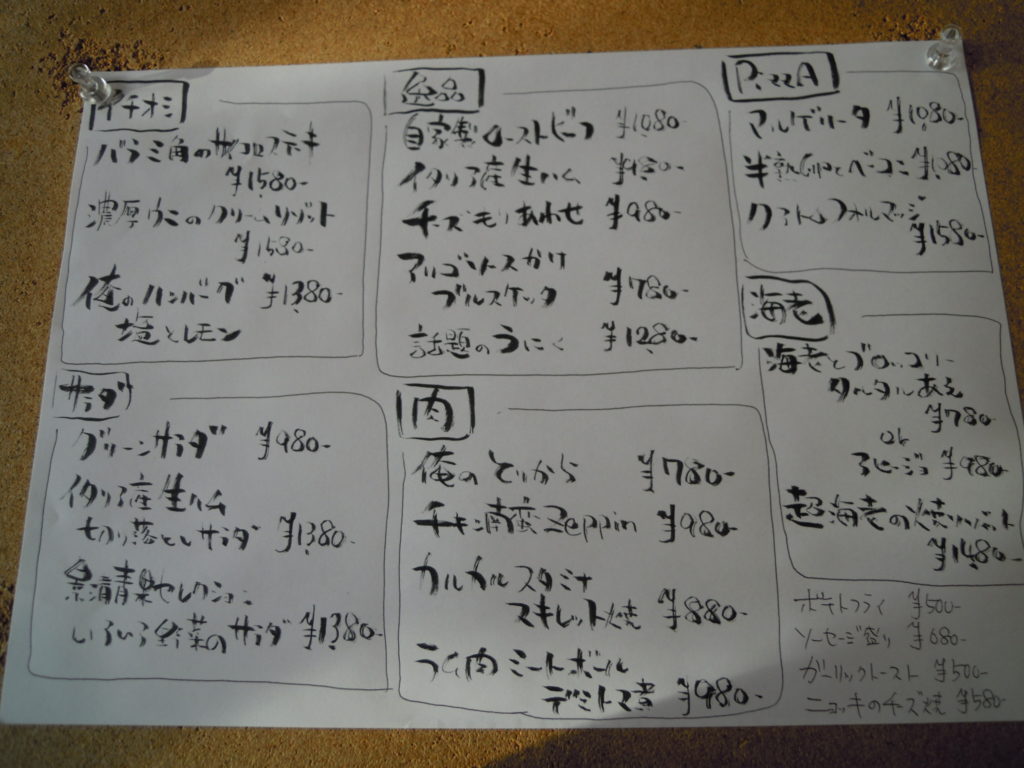 イチオシ
バラミ角のサイコロステーキ
¥1580-
濃厚ウニのクリームリゾット
¥1580-
俺のハンバーグ ¥1380-
塩とレモン
サラダ
グリーンサラダ ¥980-
イタリア産生ハム
切り落としサラダ ¥1380-
セレクション
いろいろ野菜のサラダ ¥1380-
逸品
自家製ローストビーフ ¥1080-
イタリア産生ハム
チーズもりあわせ ¥980-
ブルスケッタ ¥780-
話題のうにく ¥1280-
肉
俺のとりから ¥780-
チキン南蛮Zeppin ¥980-
カルカルスタミナ
マキレット焼 ¥880-
ラム肉ミートボール
デミトマ煮 ¥980-
PizzA
マルゲリータ ¥1080-
半熟卵とベーコン ¥1080-
クアトロフォルマッジ
¥1580-
海老
海老とブロッコリー
タルタルあえ
¥780-
or
アヒージョ ¥980-
超海老の焼
¥1480-
ポテトフライ ¥500-
ソーセージ盛り ¥680-
ガーリックトースト ¥500-
ニョッキのチーズ焼 ¥580-